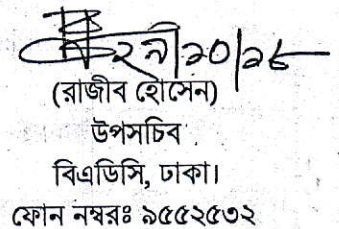 (রাজীব হোসেন)
উপসচিব
বিএডিসি, ঢাকা।
ফোন নম্বরঃ ৯৫৫২৫৩২